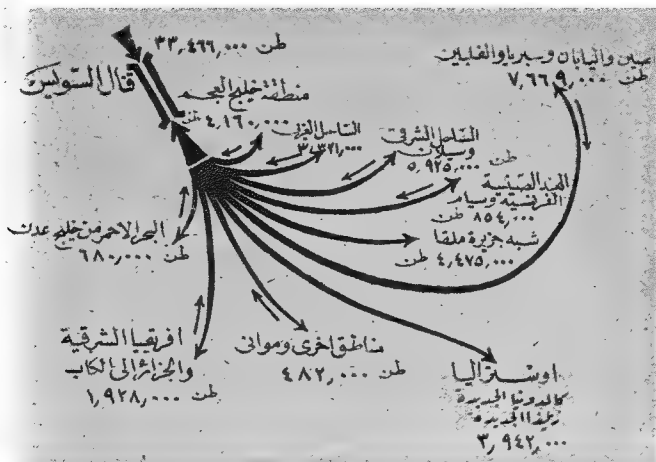 ٣٣,٤٦٦,٠٠٠ طن
قنال السويس
منطقة خليج العجم
٤,١٦٠,٠٠٠ طن
الساحل الغربي
٣,٣٢١,٠٠٠
الساحل الشرقي
وسيلان
٥,٩٢٥,٠٠٠ طن
صين واليابان وسيبريا والفلبين
٧,٦٦٩,٠٠٠ طن
الهند الصينية
الفرنسية وسيام
٨٥٤,٠٠٠ طن
شبه جزيرة ملقا
٤,٤٧٥,٠٠٠ طن
البحر الاحمر من خليج عدن
٦٨٠,٠٠٠ طن
افريقيا الشرقية
والجزائر الى الكاب
١,٩٢٨,٠٠٠ طن
مناطق اخرى وموانى
٤٨٢,٠٠٠ طن
اوستراليا
كالدونيا الجديدة
زيلندا الجديدة
٣,٩٤٢,٠٠٠